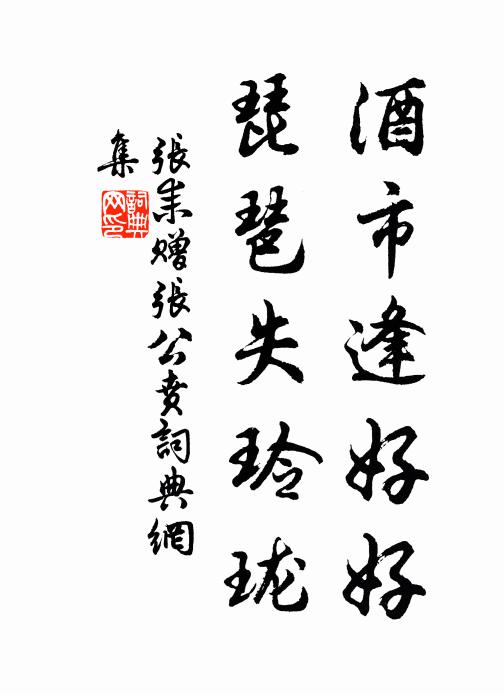 酒市逢好好
琵琶失玲珑
張耒贈張公賁詞典網
集
詞典
网印